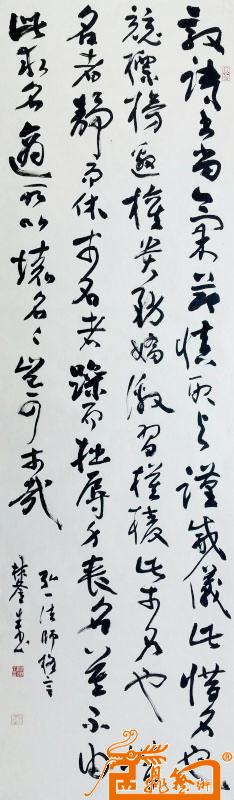 敦詩書尚氣節慎取與謹威儀此惜名也
競標榜邀權貴務矯激習模稜此市名也惜
名者靜而休市名者躁而拙辱身喪名莫不由
此求名適所以壞名々豈可市哉
弘一法師格言